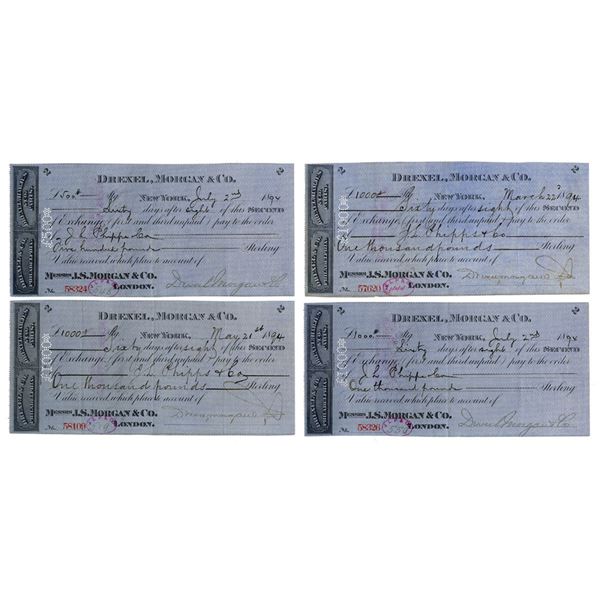 2
DREXEL, MORGAN & CO.
£500
NEW YORK, July 2nd 1894
Sixty days after sight of this SECOND
Exchange (first and third unpaid) pay to the order
J L Phipps & Co
Five hundred pounds Sterling
Value received, which place to account of
MESSRS J.S. MORGAN & CO.
No. 58324 LONDON.
Drexel Morgan & Co
2
DREXEL, MORGAN & CO.
£1000
NEW YORK, March 22d 1894
Sixty days after sight of this SECOND
Exchange (first and third unpaid) pay to the order
J L Phipps & Co
One thousand pounds Sterling
Value received, which place to account of
MESSRS J.S. MORGAN & CO.
No. 57620 LONDON.
2
DREXEL, MORGAN & CO.
£1000
NEW YORK, May 21st 1894
Sixty days after sight of this SECOND
Exchange (first and third unpaid) pay to the order
J L Phipps & Co
One thousand pounds Sterling
Value received, which place to account of
MESSRS J.S. MORGAN & CO.
No. 58109 LONDON.
2
DREXEL, MORGAN & CO.
£1000
NEW YORK, July 2nd 1894
Sixty days after sight of this SECOND
Exchange (first and third unpaid) pay to the order
J L Phipps & Co
One thousand pounds Sterling
Value received, which place to account of
MESSRS J.S. MORGAN & CO.
No. 58326 LONDON.
Drexel Morgan & Co